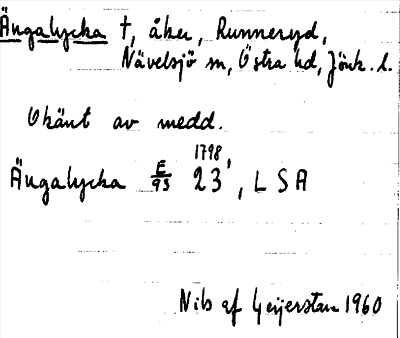 Ängalycka †, åker, Runneryd,
Nävelsjö sn, Östra hd, Jönk. l.
Okänt av medd.
Ängalycka E/93 1798, 23, L S A
Nils af Geijerstam 1960